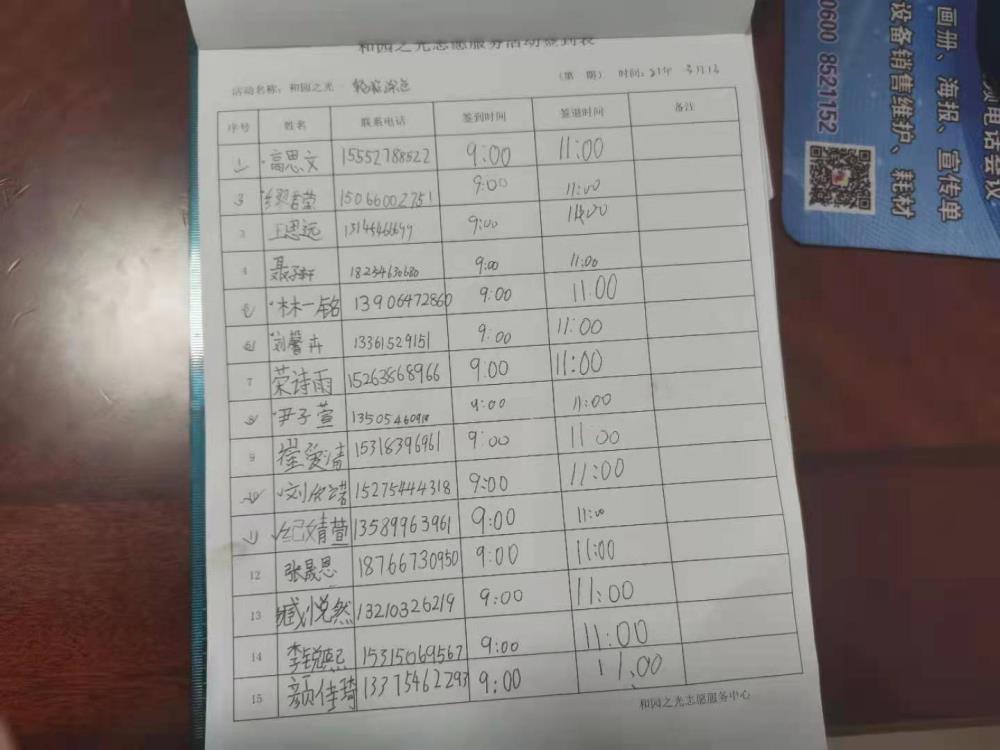 和园之光志愿服务活动签到表
活动名称：和园之光 (第 期) 时间：21年 3月13
序号 姓名 联系电话 签到时间 签退时间 备注
1 高思文 15552788522 9:00 11:00
3 15066002751 9:00 11:00
2 王思远 9:00
4 聂子轩 18254630680 9:00 11:00
5 林一铭 13906472860 9:00 11:00
6 刘馨卉 13361529151 9:00 11:00
7 荣诗雨 15263868966 9:00 11:00
8 尹子萱 9:00 11:00
9 崔爱清 15318396961 9:00 11:00
10 15275444318 9:00 11:00
11 纪婧萱 13589963961 9:00 11:00
12 张晟恩 18766730950 9:00 11:00
13 臧悦然 13210326219 9:00 11:00
14 李锐熙 15315069567 9:00 11:00
15 颜佳琦 13375462293 9:00 11:00
和园之光志愿服务中心
画册、海报、宣传单
设备销售维护、耗材
0600 8521152